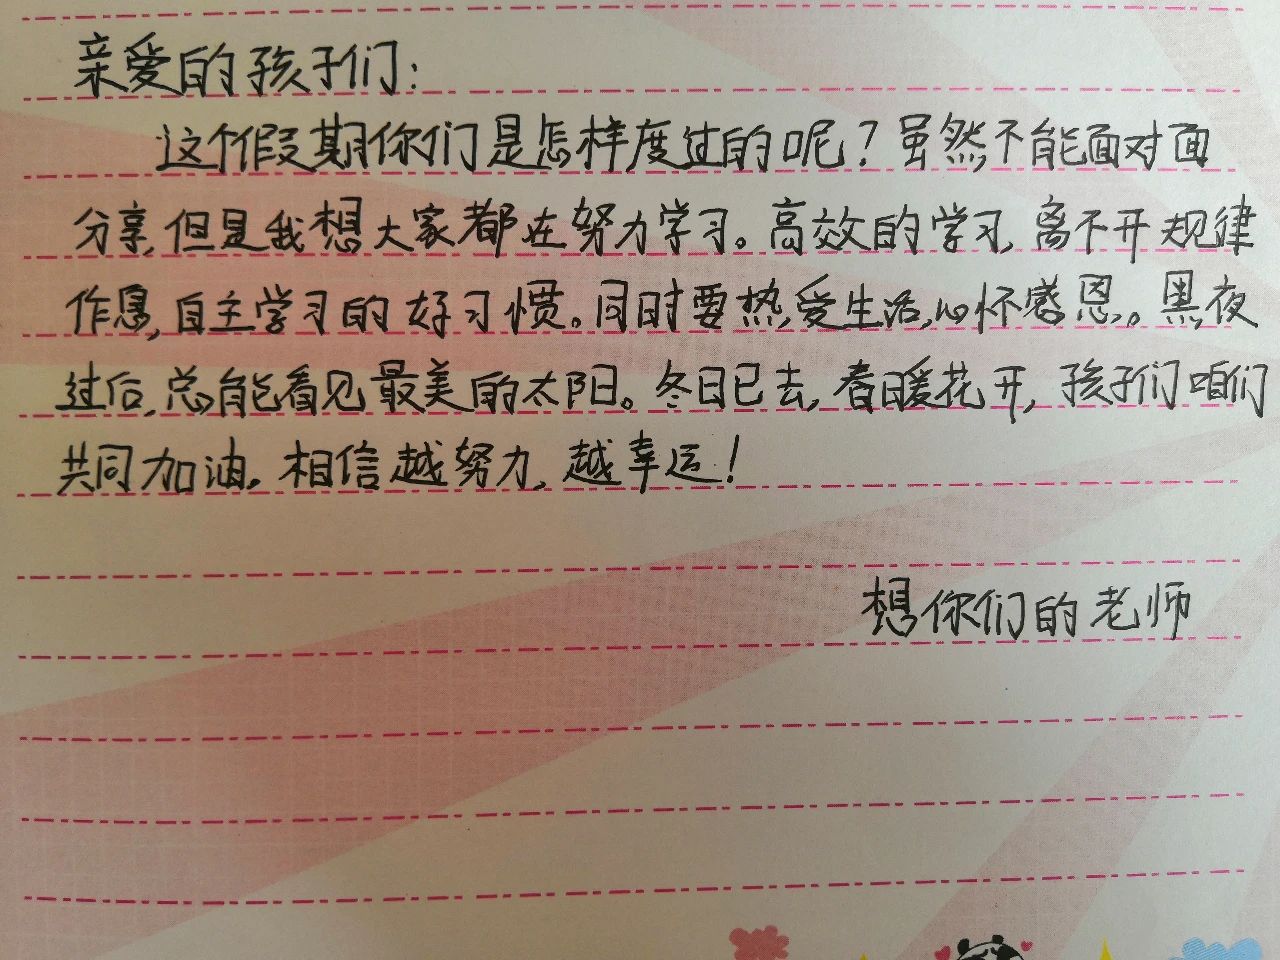 亲爱的孩子们:
这个假期你们是怎样度过的呢?虽然不能面对面
分享,但是我想大家都在努力学习。高效的学习,离不开规律
作息,自主学习的好习惯。同时要热爱生活,心怀感恩。黑夜
过后,总能看见最美的太阳。冬日已去,春暖花开,孩子们咱们
共同加油。相信越努力,越幸运!
想你们的老师